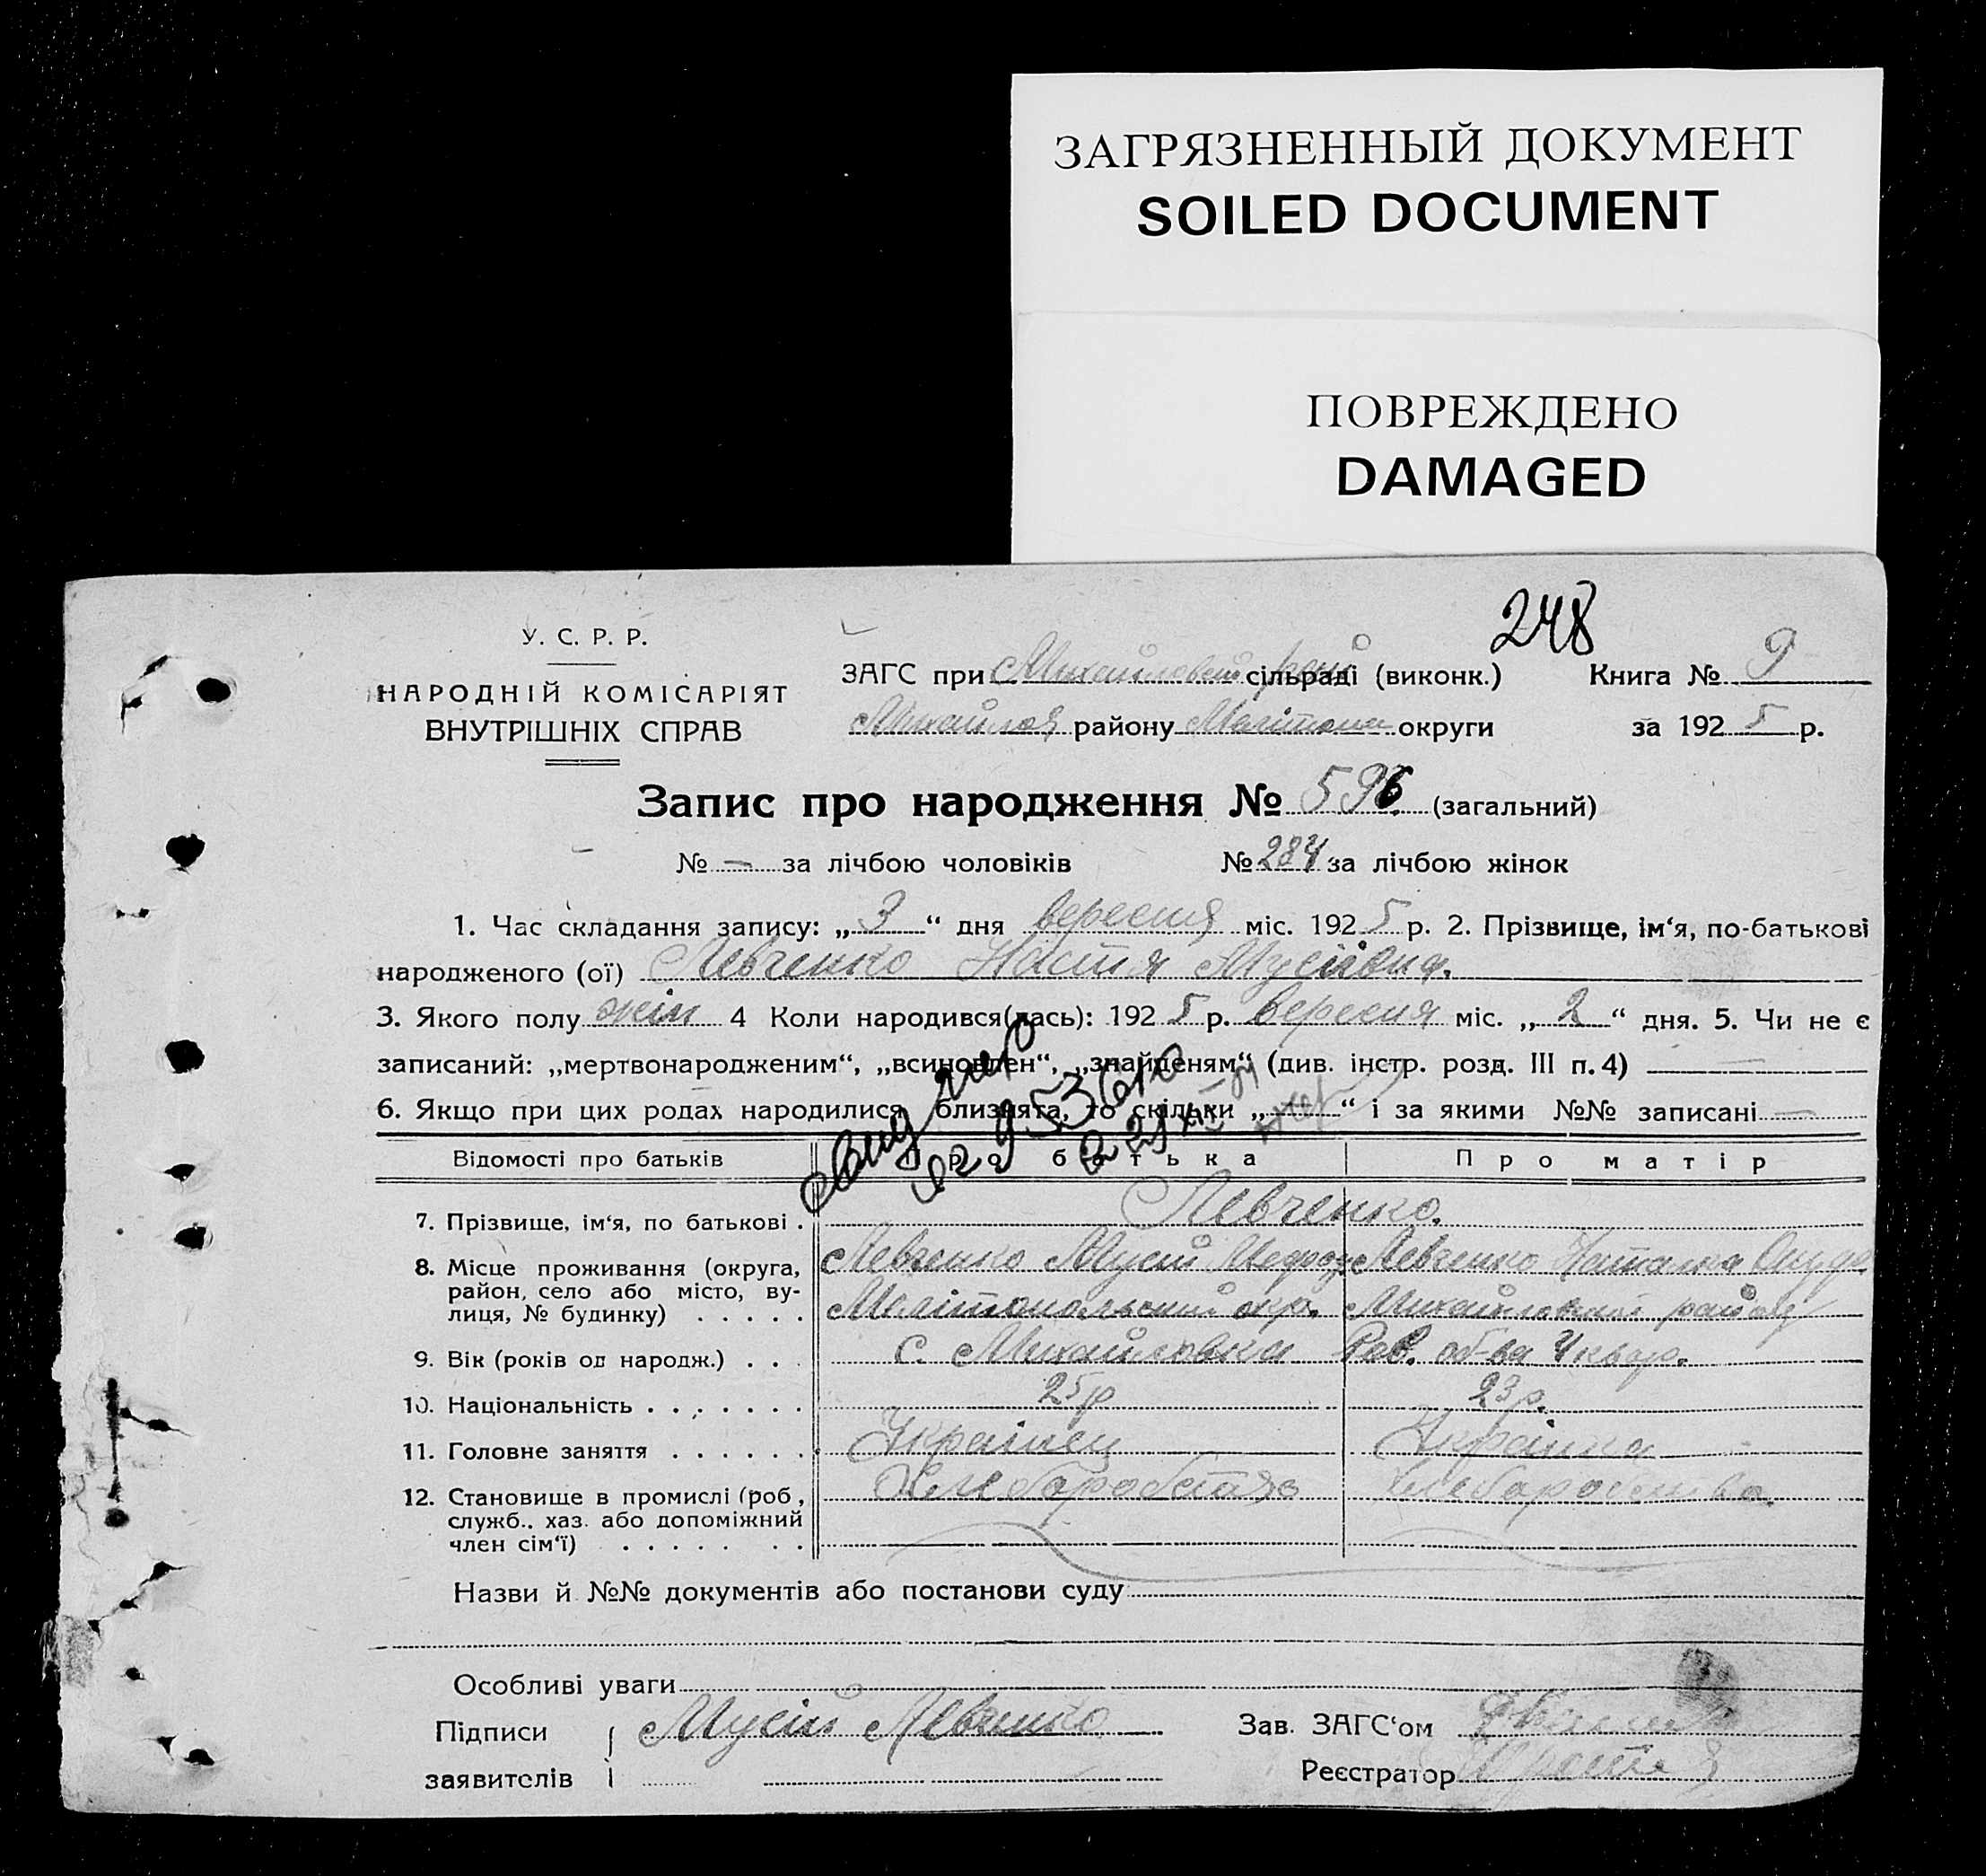 ЗАГРЯЗНЕННЫЙ ДОКУМЕНТ
SOILED DOCUMENT
ПОВРЕЖДЕНО
DAMAGED
248
У. С. Р. Р.
НАРОДНІЙ КОМІСАРІЯТ
ВНУТРІШНІХ СПРАВ
ЗАГС при сільраді (виконк.) Книга № 9
району округи за 1925 р.
Запис про народження № 596 (загальний)
№ — за лічбою чоловіків № 284 за лічбою жінок
1. Час складання запису: „3“ дня вересня міс. 1925 р. 2. Прізвище, ім‘я, по-батькові
народженого (ої) Левченко Настя Мусіївна.
3. Якого полу жін 4 Коли народився(лась): 1925 р. вересня міс. „2“ дня. 5. Чи не є
записаний: „мертвонародженим“, „всиновлен“, „знайденям“ (див. інстр. розд. III п. 4) —
6. Якщо при цих родах народилися близнята, то скільки „ “ і за якими №№ записані —
Відомості про батьків Про батька Про матір
7. Прізвище, ім‘я, по батькові . Левченко.
8. Місце проживання (округа, Левченко Мусій Левченко Наталка
район, село або місто, ву- Мелітопольський окр. Михайловский району
лиця, № будинку) . . . . .
9. Вік (років од народж.) . . . с. Михайловка
10. Національність . . . . . . . 25р 23р.
11. Головне заняття . . . . . . Українец Українка
12. Становище в промислі (роб., Хлеборобство Хлеборобство.
служб., хаз. або допоміжний
член сім‘ї) . . . . . . .
Назви й №№ документів або постанови суду
Особливі уваги
Підписи Мусій Левченко Зав. ЗАГС‘ом
заявителів Реєстратор